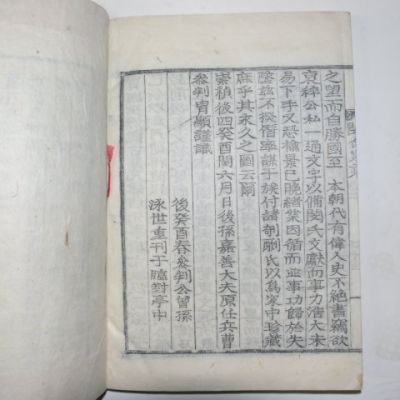 之望而自勝國至 本朝代有偉人史不絕書竊欲
裒稡公私一通文字以備閔氏文獻而事力浩大未
易下手又恐楡景已晩緖業因循而並事功歸於失
墜玆不揆僭率謀于族付諸剞劂氏以爲家中珍藏
庶乎其永久之圖云爾
崇禎後四癸酉閏六月日後孫嘉善大夫原任兵曹
參判胄顯謹識
後癸酉春參判公曾孫
泳世重刊于臨對亭中